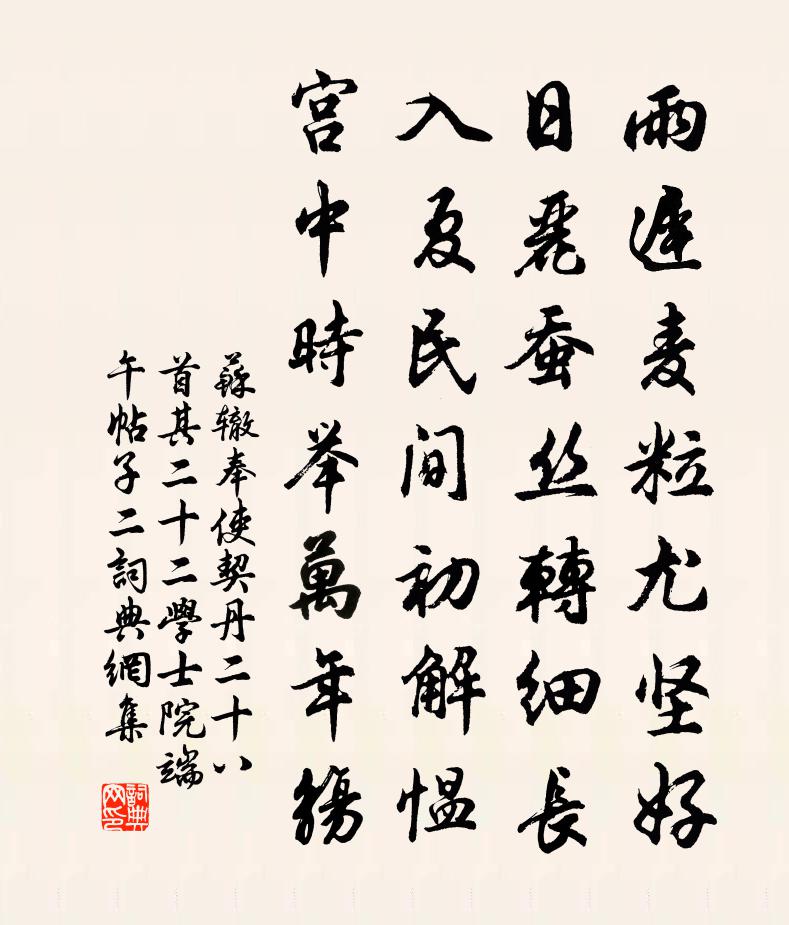 雨遲麦粒尤坚好
日麗蚕丝轉细長
入夏民间初解愠
宫中時举萬年觴
蘇辙奉使契丹二十八
首其二十二學士院端
午帖子二詞典網集
詞典网印